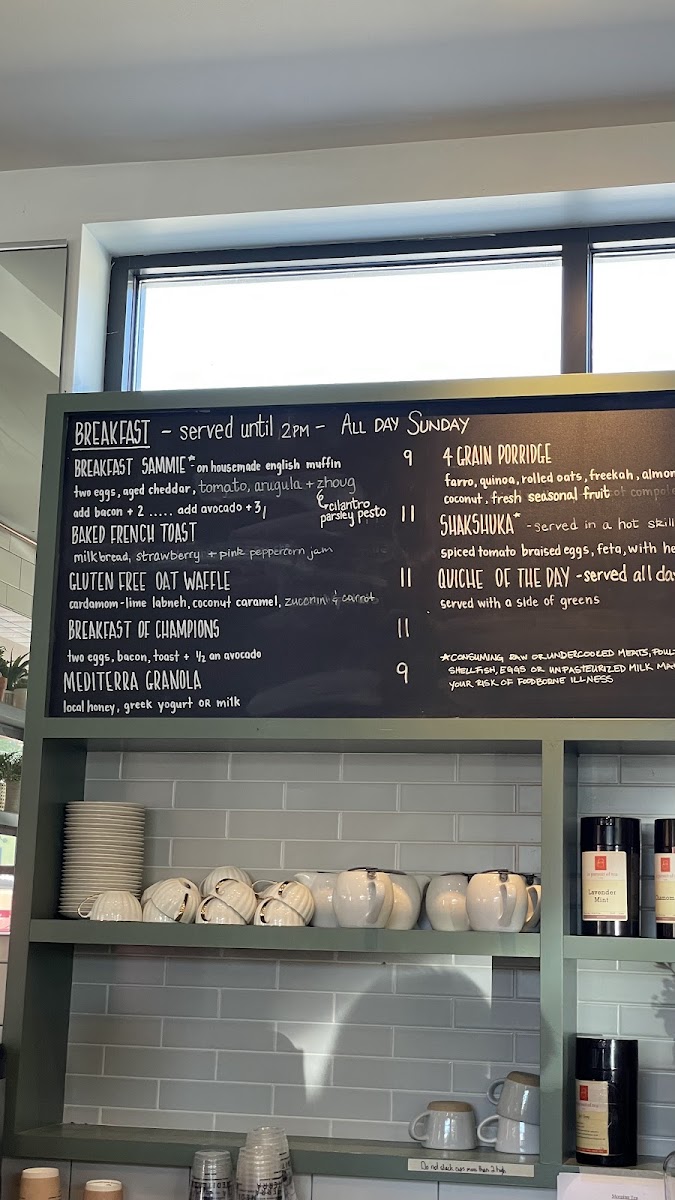 BREAKFAST - served until 2PM - ALL DAY SUNDAY
BREAKFAST SAMMIE* - on housemade english muffin 9
two eggs, aged cheddar, tomato, arugula + zhoug
add bacon + 2 ..... add avocado + 3
cilantro
parsley pesto
BAKED FRENCH TOAST 11
milk bread, strawberry + pink peppercorn jam
GLUTEN FREE OAT WAFFLE 11
cardamom-lime labneh, coconut caramel, zucchini & carrot
BREAKFAST OF CHAMPIONS 11
two eggs, bacon, toast + 1/2 an avocado
MEDITERRA GRANOLA 9
local honey, greek yogurt OR milk
4 GRAIN PORRIDGE
farro, quinoa, rolled oats, freekah, almon
coconut, fresh seasonal fruit
SHAKSHUKA* - served in a hot skill
spiced tomato braised eggs, feta, with he
QUICHE OF THE DAY - served all da
served with a side of greens
*CONSUMING RAW OR UNDERCOOKED MEATS, POUL
SHELLFISH, EGGS OR UNPASTEURIZED MILK MA
YOUR RISK OF FOODBORNE ILLNESS
Lavender
Mint
Do not stack cups more than 2 high